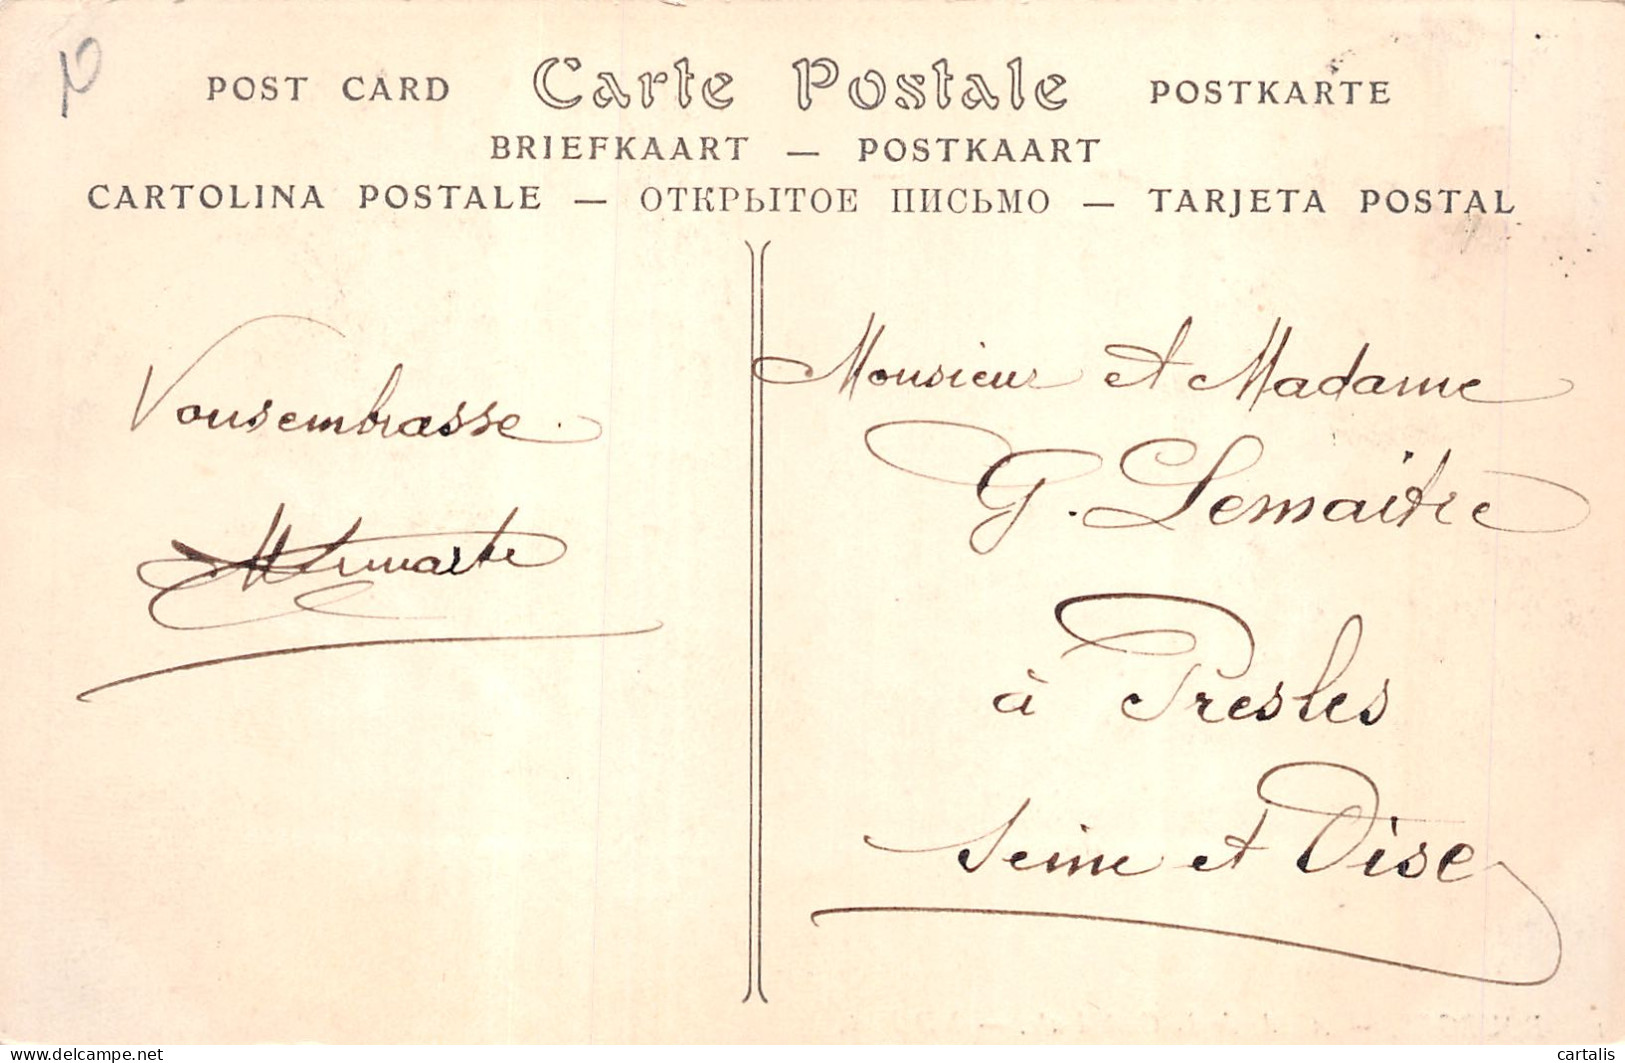 POST CARD Carte Postale POSTKARTE
BRIEFKAART — POSTKAART
CARTOLINA POSTALE — ОТКРЫТОЕ ПИСЬМО — TARJETA POSTAL
Vous embrasse
Monsieur et Madame
G. Lemaitre
à Presles
Seine et Oise
www.delcampe.net
cartalis